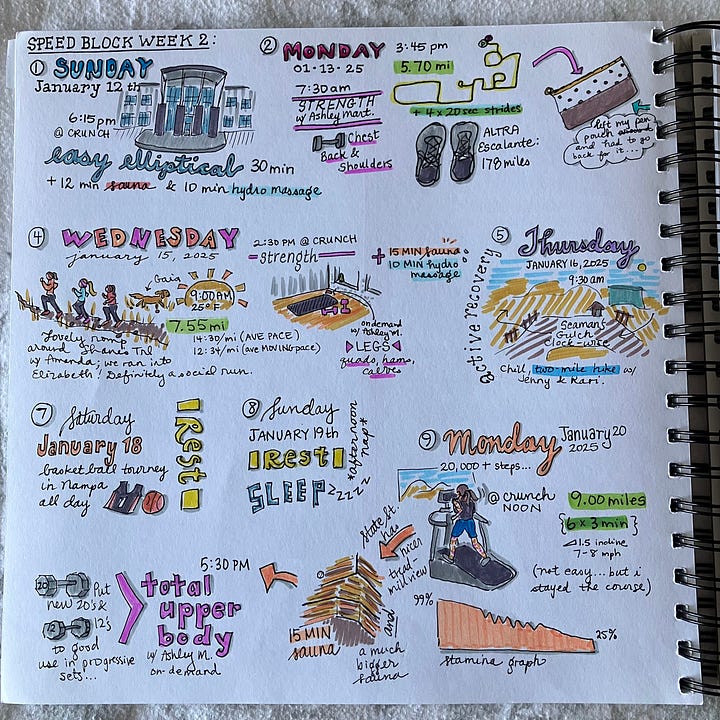 SPEED BLOCK WEEK 2:
① SUNDAY
January 12th
6:15pm
@ CRUNCH
easy elliptical 30 min
+ 12 min sauna & 10 min hydro massage
② MONDAY
01·13·25
7:30am
STRENGTH
w/ Ashley Mart.
Chest
Back &
Shoulders
3:45 pm
5.70 mi
+ 4 x 20 sec strides
ALTRA
Escalante:
178 miles
left my pen
pouch
and had to go
back for it...
④ WEDNESDAY
january 15, 2025
Gaia
9:00AM
25°F
7.55 mi
14:30/mi (AVE PACE)
12:34/mi (ave MOVING pace)
Lovely romp
around Shane's Trl
w/ Amanda; we ran into
Elizabeth! Definitely a social run.
2:30 PM @ CRUNCH
strength
on demand
w/ Ashley M.
LEGS
quads, hams,
calves
+ 15 MIN sauna
10 MIN hydro
massage
active recovery
⑤ Thursday
JANUARY 16, 2025
9:30am
Seaman's
Gulch
Clock-wise
Chill, two-mile hike w/
Jenny & Kari.
⑦ Saturday
January 18
basketball tourney
in Nampa
all day
Rest
⑧ Sunday
JANUARY 19th
REST
SLEEP zzzzz
*afternoon
nap*
⑨ Monday January 20
2025
20,000 + steps...
@ crunch
NOON
9.00 miles
{6 x 3 min}
1.5 incline
7-8 mph
(not easy... but i
stayed the course)
99%
25%
stamina graph
State St.
has
nicer
tread-
mill view
and
a much
bigger
sauna
15 MIN
sauna
5:30 PM
total
upper
body
w/ Ashley M.
on-demand
Put
new 20's &
12's
to good
use in progressive
sets...